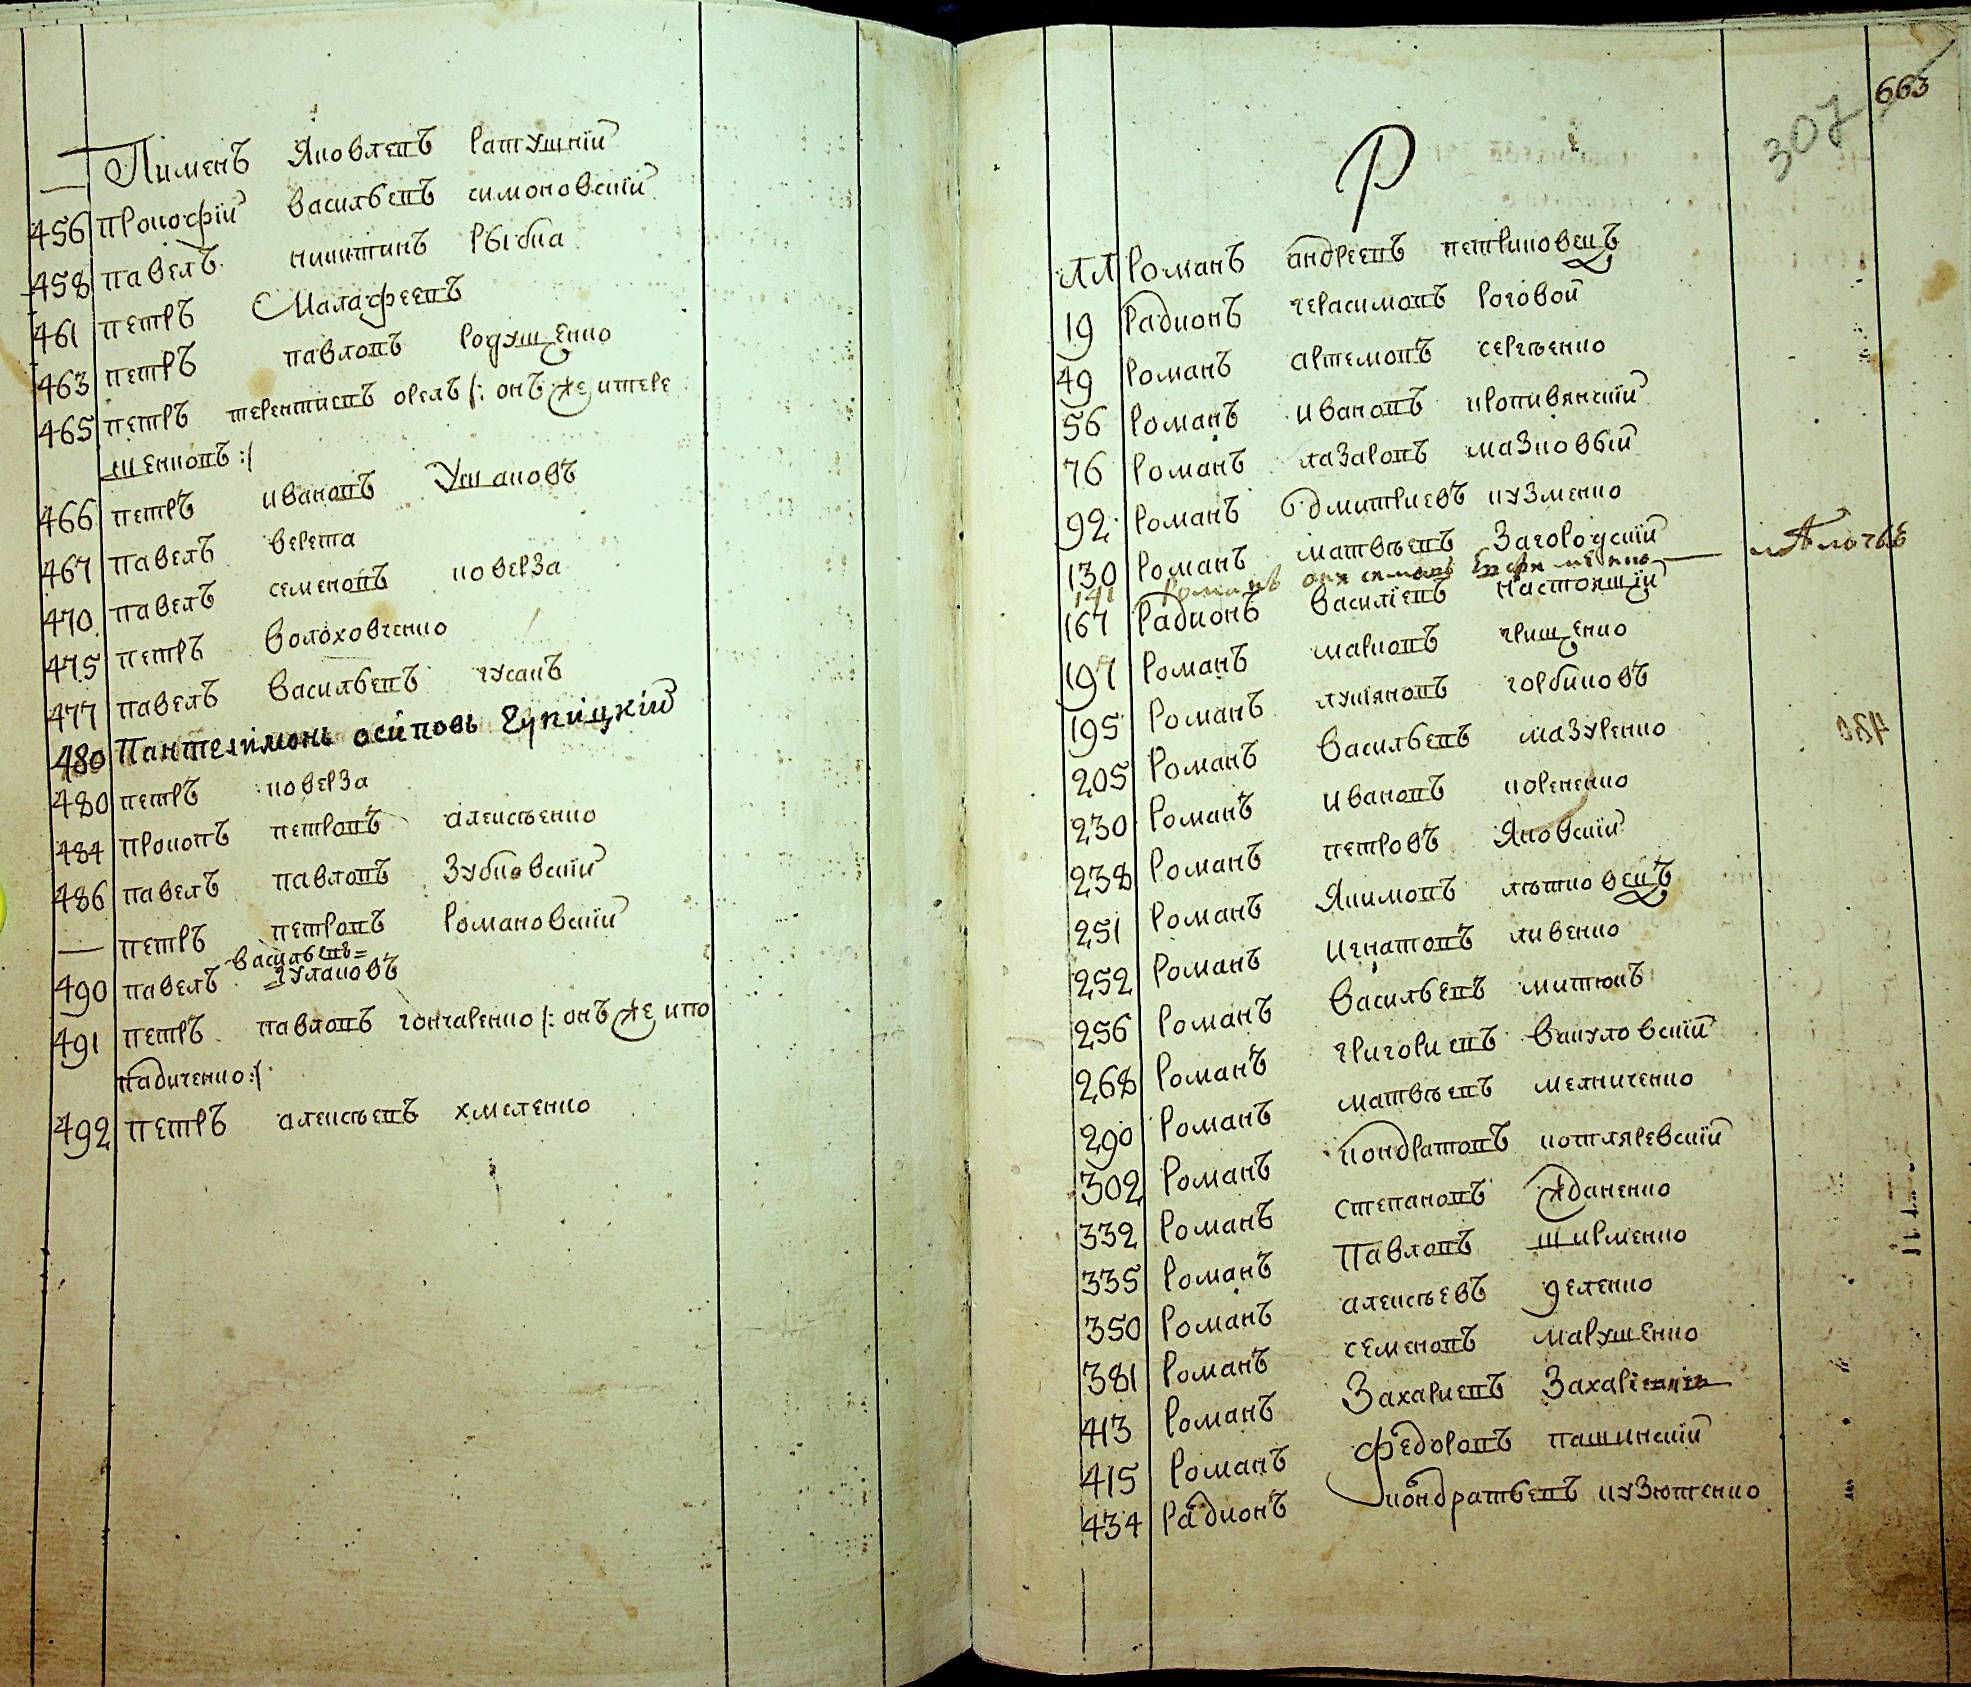 — Пименъ Яковлевъ Ратушнїй
456 прокофїй Васильевъ симоновскїй
458 павелъ никитинъ Рыбка
461 петръ Малафеевъ
463 петръ павловъ Родущенко
465 петръ терентиевъ орелъ /: онъ же итере
щенковъ :/
466 петръ ивановъ Ушаковъ
467 павелъ верета
470 павелъ семеновъ коверза
475 петръ Волоховченко
477 павелъ Васильевъ гусакъ
480 Пантелимонъ осиповъ
480 петръ коверза
484 прокопъ петровъ алексѣенко
486 павелъ павловъ Зубковскїй
— петръ петровъ Романовскїй
Васильевъ=
490 павелъ =гулаковъ
491 петръ павловъ гончаренко /: онъ же ипо
падиченко :/
492 петръ алексѣевъ хмеленко
663
307
Р
лл Романъ андреевъ петриковецъ
19 Радионъ герасимовъ Роговой
49 Романъ артемовъ сергѣенко
56 Романъ ивановъ кропивянскїй
76 Романъ лазаровъ мазковый
92 Романъ дмитриевъ кузменко
130 Романъ матвѣевъ Загородскїй
141 Романъ
167 Радионъ Василїевъ настоящїй
197 Романъ марковъ грищенко
195 Романъ лукїяновъ горбиковъ
205 Романъ Васильевъ мазуренко
230 Романъ ивановъ корененко
238 Романъ петровъ Яновскїй
251 Романъ Якимовъ лѣтковецъ
252 Романъ Игнатовъ ливенко
256 Романъ Васильевъ митюкъ
268 Романъ григориевъ Вакуловскїй
290 Романъ матвѣевъ мелниченко
302 Романъ кондратовъ котляревскїй
332 Романъ степановъ жданенко
335 Романъ Павловъ ширменко
350 Романъ алексѣевъ деленко
381 Романъ семеновъ марушенко
413 Романъ Захариевъ
415 Романъ федоровъ пашинскїй
434 Радионъ кондратьевъ кузютенко